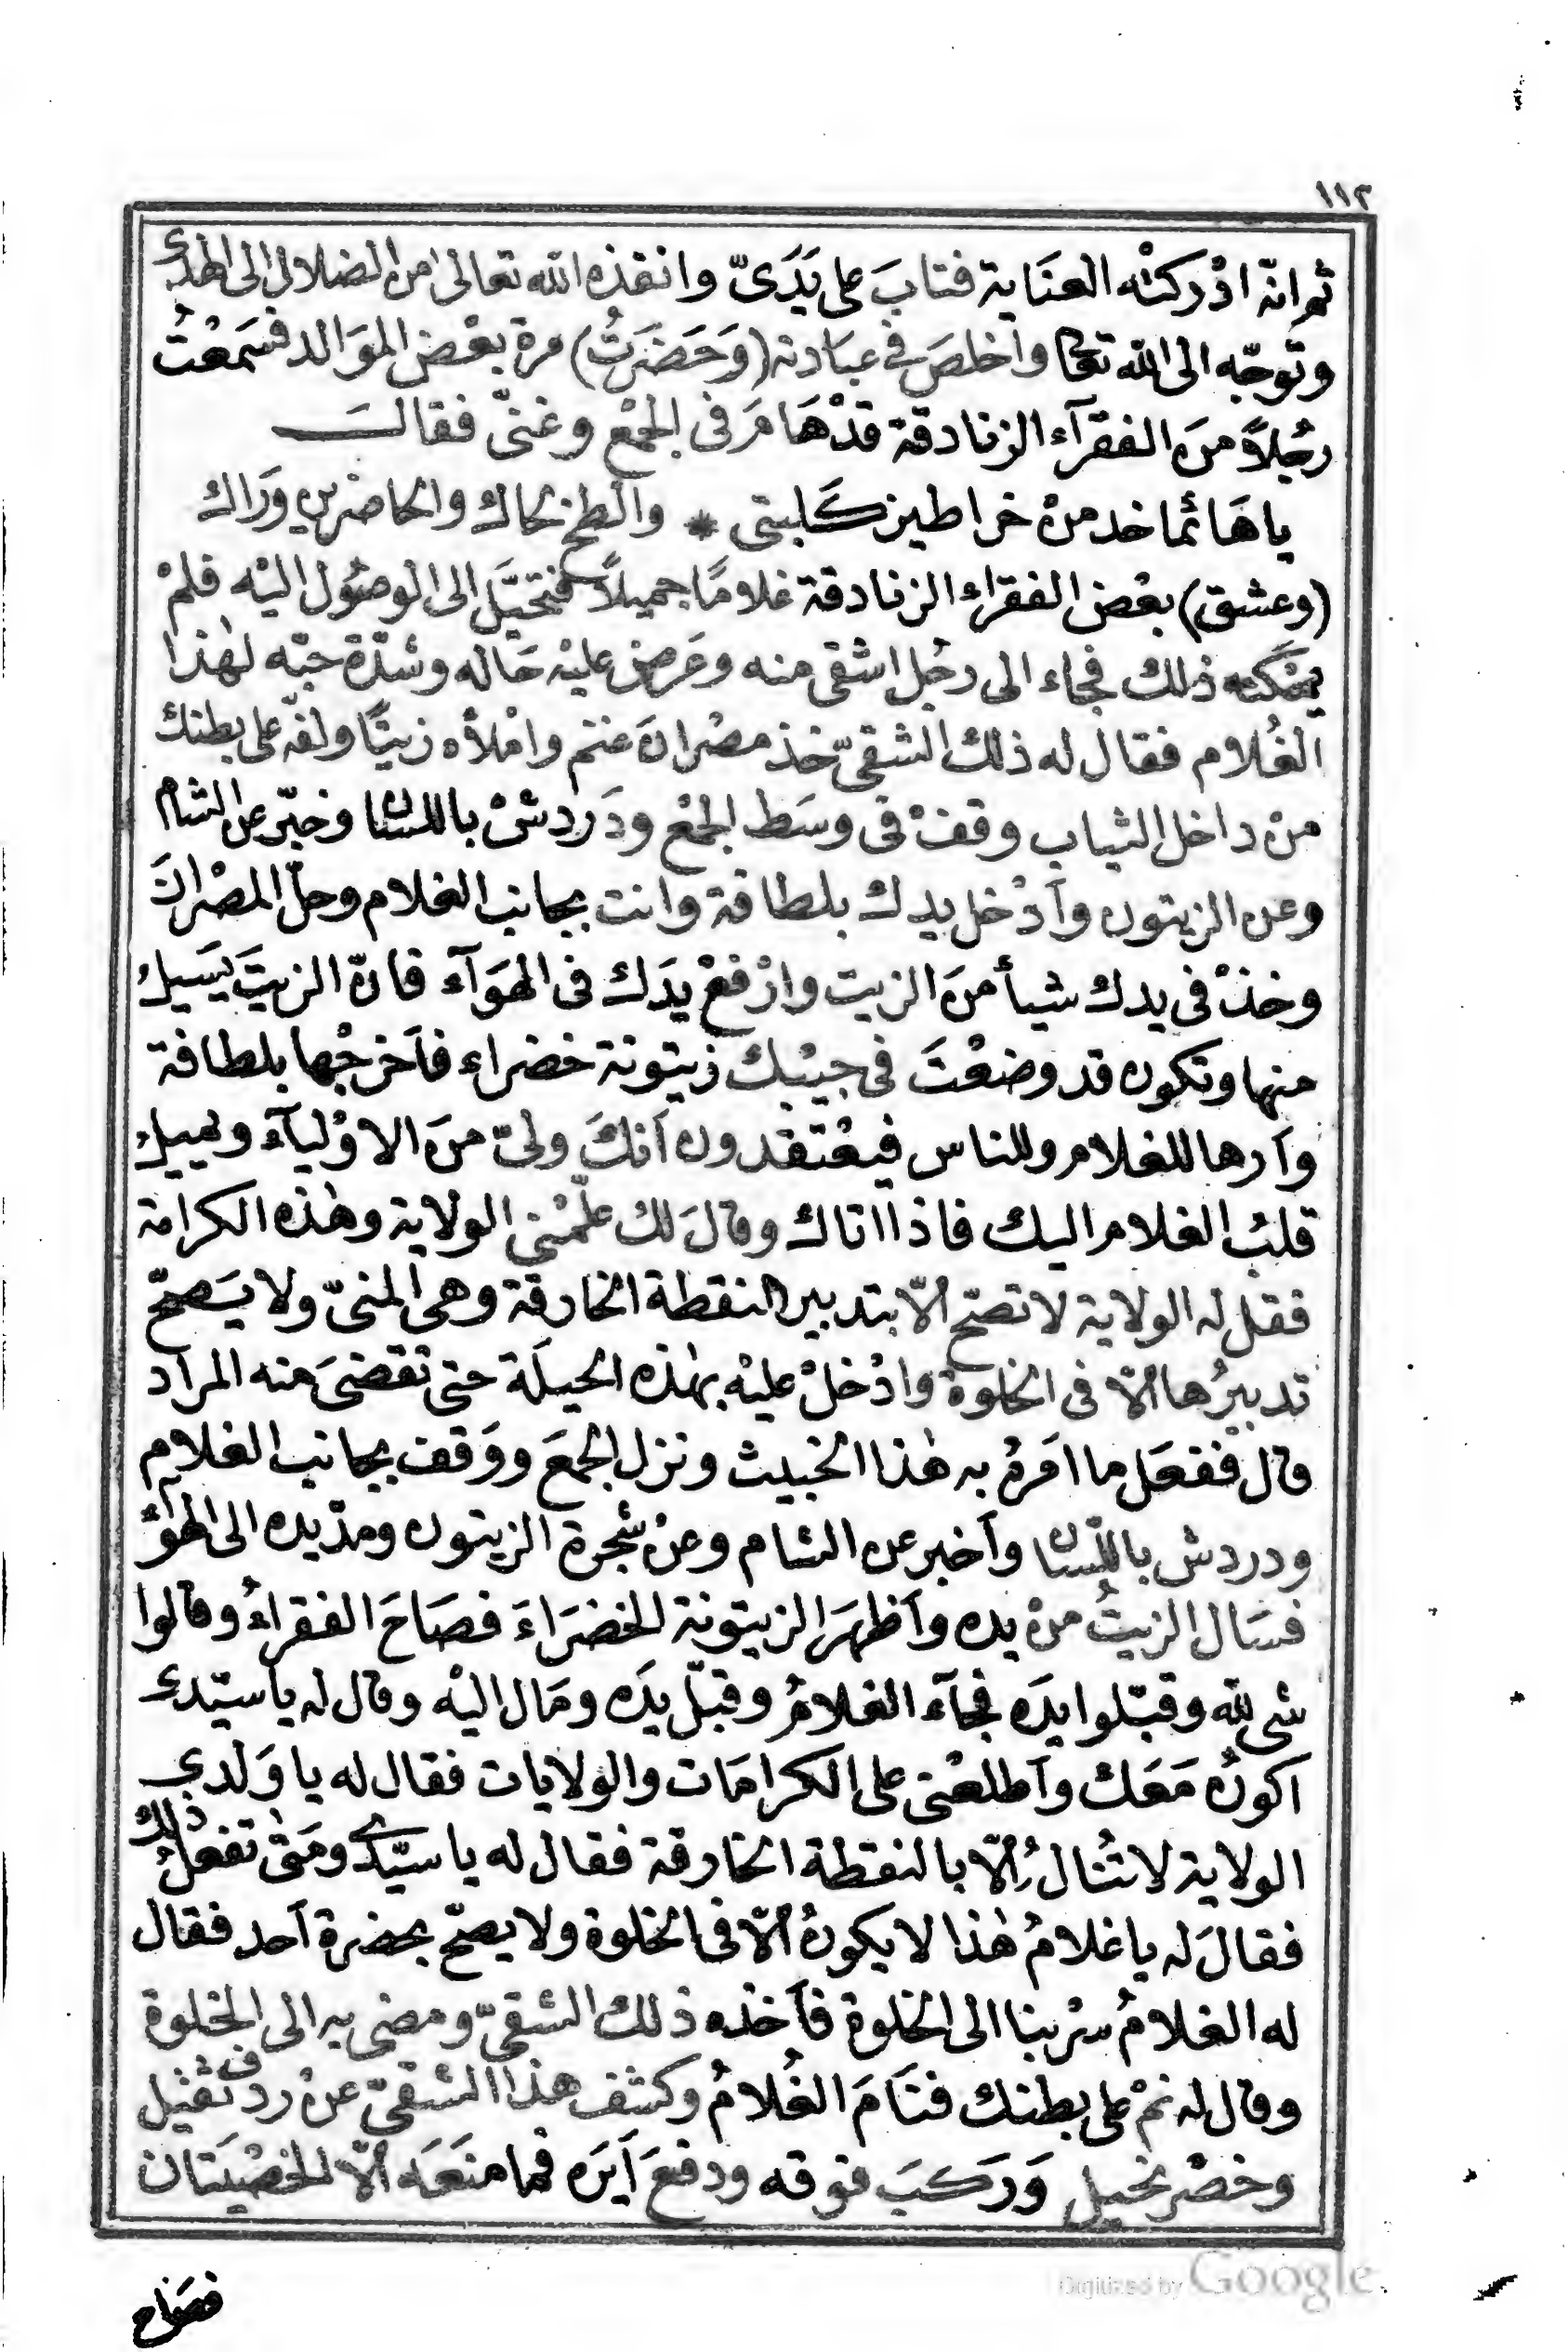 ١١٢
ثم انّه ادْركتْه العنَاية فتابَ على يَدَىّ وانقذه الله تعالى من الضلال الى الهدى
وتوجّه الى الله تعا وأخلصَ فى عبَادته (وَحَضَرتُ) مرة بعْض الموَالد فسَمعْتُ
رجُلاً منَ الفقرآء الزنادقة قدْ هَامَ فى الجمْع وغنىّ فقالـــ
ياهَائما خد منْ خراطين كَلبتى * والطخ لحاك والحاضرين وَراك
(وعشق) بعْض الفقراء الزنادقة غلامًا جميلاً فتحيَّل الى الوصُول اليْه فلمْ
يمْكنه ذلك فجاء الى رجُل اشقى منه وعَرض عليْه حَاله وشدّة حبّه لهٰذا
الغُلام فقال له ذلك الشقىّ خذ مصْرانَ غنم وامْلأه زيتًا ولفّه على بطنك
منْ داخل الثياب وقفْ فى وسَط الجمْع ودَردشْ باللسان وخبّر عن الشام
وعن الزيتون وأدْخل يدك بلطافة وانت بجانب الغلام وحلّ المصْرانَ
وخذْ فى يدك شيأ منَ الزيت وارْفعْ يدَك فى الهوَآء فانّ الزيتَ يَسيلُ
منها وتكون قد وضعْتَ فى جيْبك زيتونة خضراء فأخرجْها بلطافة
وأرها للغلام وللناس فيعْتقدون أنكَ ولىّ منَ الاوْليآء ويميلُ
قلبُ الغلام اليك فاذا اتاك وقالَ لكَ علّمْنى الولاية وهٰذه الكرامة
فقل له الولاية لا تصّح الاّ بتدبير النقطة الخارقة وهى المنىّ ولا يَصحّ
تدبيرُها الاّ فى الخلوة وادْخلْ عليْه بهٰذه الحيلَة حتى تقضىَ منه المراد
قال ففعَل ما امَرهُ به هٰذا الخبيث ونزل الجمعَ ووَقف بجانب الغلام
ودردش باللّسان وأخبر عن الشام وعنْ شجرة الزيتون ومدّ يده الى الهوآء
فسَال الزيتُ منْ يده وأظهرَ الزيتونة الخضرَاءَ فصَاحَ الفقراءُ وقالوا
شى لله وقبّلوا يدَه فجآء الغلامُ وقبّل يدَه ومَال اليْه وقال له يا سيّدى
اكونُ مَعَك وأطلعْنى على الكرامَات والولايات فقال له يا وَلدى
الولاية لا تُنالُ الاّ بالنقطة الخارقة فقال له يا سيّدى ومَتىٰ تفعلُ ذلك
فقالَ له يا غلامُ هٰذا لا يكونُ الاّ فى الخلوة ولا يصحّ بحضرة أحد فقال
له الغلامُ سرْ بنا الى الخلوة فأخذه ذلك الشقىّ ومضى به الى الخلوة
وقال له نمْ على بطنك فنَامَ الغُلامُ وكشف هذا الشقىّ عنْ ردف ثقيل
وخصْر نحيل وَرَكبَ فوقه ودفعَ أيرَه فما منَعَه الاّ الخصْيَتان
فصَاح
Digitized by Google